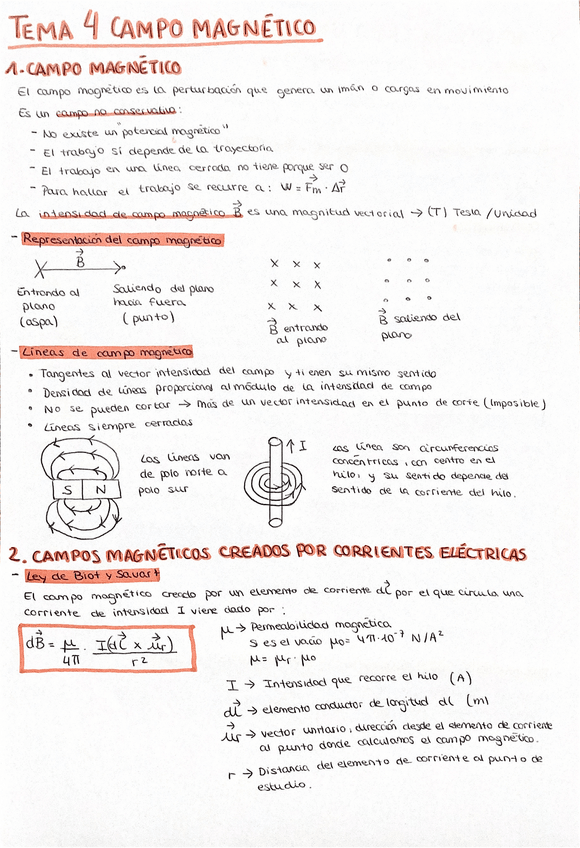 TEMA 4 CAMPO MAGNÉTICO
1.-CAMPO MAGNÉTICO
El campo magnético es la perturbación que genera un imán o cargas en movimiento
Es un campo no conservativo:
- No existe un "potencial magnético"
- El trabajo sí depende de la trayectoria
- El trabajo en una línea cerrada no tiene porque ser 0
- Para hallar el trabajo se recurre a: W = F⃗m · Δr⃗
La intensidad de campo magnético B⃗ es una magnitud vectorial → (T) Tesla / Unidad
- Representación del campo magnético
B⃗
Entrando al plano (aspa)
Saliendo del plano hacia fuera (punto)
x x x
x x x
x x x
B⃗ entrando al plano
B⃗ saliendo del plano
- Líneas de campo magnético
• Tangentes al vector intensidad del campo y tienen su mismo sentido
• Densidad de líneas proporcional al módulo de la intensidad de campo
• No se pueden cortar → más de un vector intensidad en el punto de corte (Imposible)
• Líneas siempre cerradas
S N
Las líneas van
de polo norte a
polo sur
I
Las línea son circunferencias
concéntricas, con centro en el
hilo, y su sentido depende del
sentido de la corriente del hilo.
2. CAMPOS MAGNÉTICOS CREADOS POR CORRIENTES ELÉCTRICAS
- Ley de Biot y Savart
El campo magnético creado por un elemento de corriente dl⃗ por el que circula una
corriente de intensidad I viene dado por:
dB⃗ = μ/4π · I(dl⃗ x u⃗r)/r²
μ → Permeabilidad magnética
S es el vacío μ0 = 4π·10⁻⁷ N/A²
μ = μr · μ0
I → Intensidad que recorre el hilo (A)
dl⃗ → elemento conductor de longitud dl (m)
u⃗r → vector unitario, dirección desde el elemento de corriente
al punto donde calculamos el campo magnético.
r → Distancia del elemento de corriente al punto de
estudio.